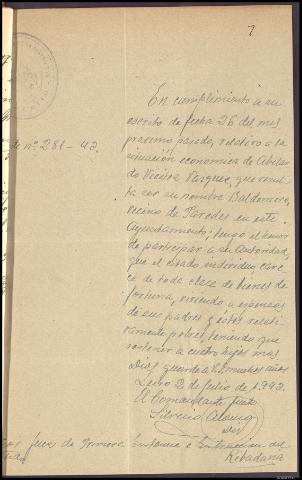 7
En cumplimiento a su
escrito de fecha 26 del mes
proximo pasado, relativo a la
situación economica de Abelar
do Vieitez Vazquez, que resul
ta ser su nombre Baldomero,
de nº. 281-42.
vecino de Paredes en este
Ayuntamiento; tengo el honor
de participar a su Autoridad,
que el citado individuo care
ce de toda clase de bienes de
fortuna, viviendo a expensas
de sus padres y éstos relati
vamente pobres, teniendo que
sostener a cuatro hijos mas.
Dios guarde a V. muchos años
Leiro 2 de Julio de 1942.
El Comandante
Silverio
Juez de Primera Instancia e Instruccion de
Ribadavia